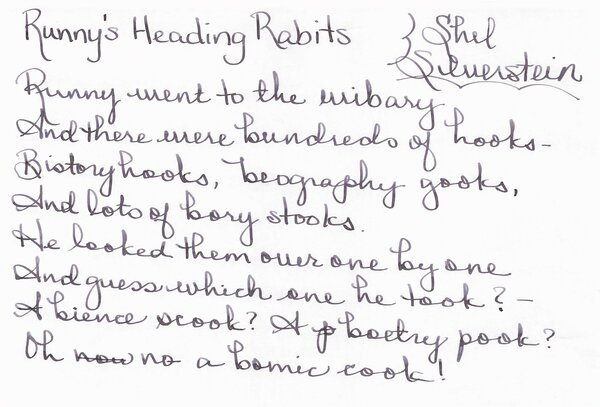 Runny's Heading Rabits } Shel
Silverstein
Runny went to the wibary
And there were bundreds of hooks-
Bistory hooks, beography gooks,
And lots of bory stooks.
He looked them over one by one
And guess which one he took? -
A bience scook? A boetry pook?
Oh now no a bomic cook!